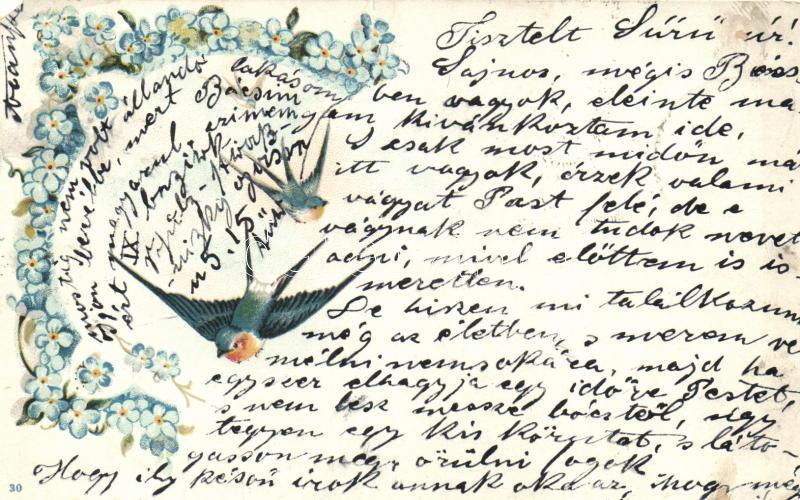 Tisztelt Sürü úr!
Sajnos, mégis Bécs-
ben vagyok, eleinte ma-
gam kivánkoztam ide,
s csak most midőn má
itt vagyok, érzek valami
vágyat Pest felé, de e
vágynak nem tudok nevet
adni, mivel előttem is is-
meretlen.
De hiszen mi találkozunk
még az életben, s merem re-
mélni nemsokára, majd ha
egyszer elhagyja egy időre Pestet,
s nem lesz messze bécstől, úgy
tegyen egy kis körutat, s láto-
gasson meg örülni fogok
Hogy ily késön irok annak oka az, hogy még
mostig nem volt állandó lakásom
bérelve, mert Bécsim
ért magyarul czimem
IX
u 5. 15
30